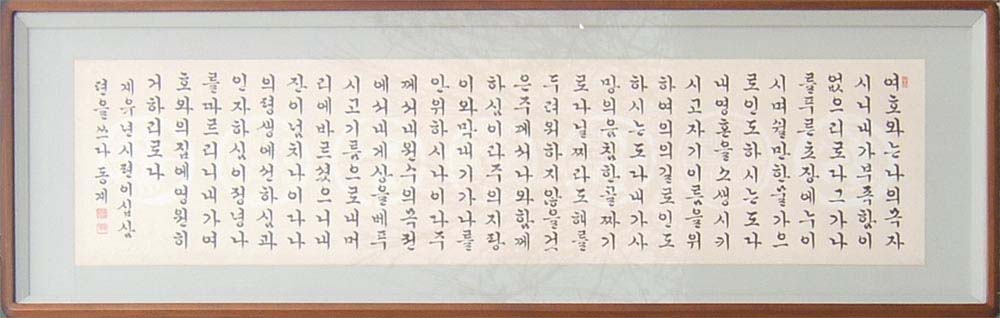 여호와는나의목자
시니내가부족함이
없으리로다그가나
를푸른초장에누이
시며쉴만한물가으
로인도하시는도다
내영혼을소생시키
시고자기이름을위
하여의의길로인도
하시는도다내가사
망의음침한골짜기
로다닐찌라도해를
두려워하지않을것
은주께서나와함께
하심이라주의지팡
이와막대기가나를
안위하시나이다주
께서내원수의목전
에서내게상을베푸
시고기름으로내머
리에바르셨으니내
잔이넘치나이다나
의평생에선하심과
인자하심이정녕나
를따르리니내가여
호와의집에영원히
거하리로다
계유년시편이십삼
편을쓰다 동계